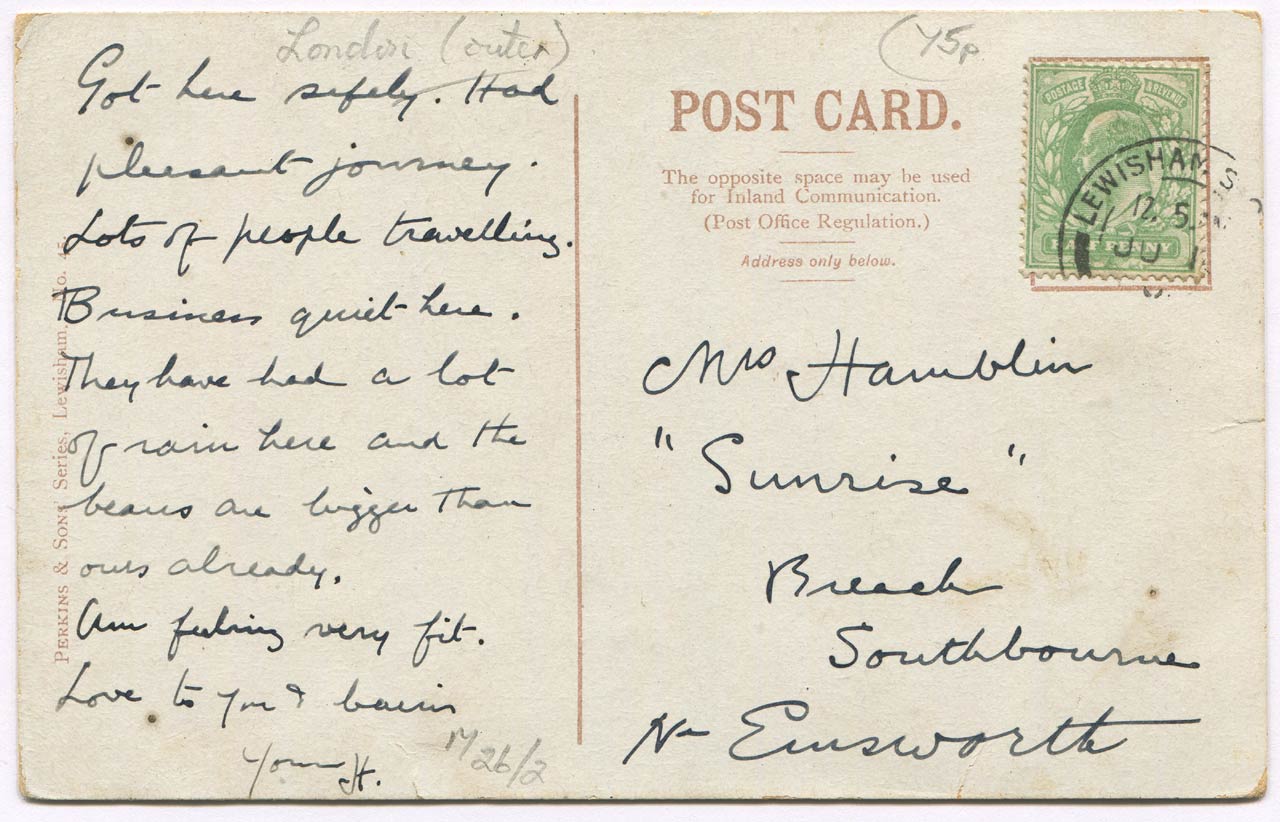 London (outer)
Got here safely. Had
pleasant journey.
Lots of people travelling.
Business quiet here.
They have had a lot
of rain here and the
beans are bigger than
ours already.
Am feeling very fit.
Love to you & bairn
Yours H.
26/2
PERKINS & SONS' Series, Lewisham. No.
75p
POST CARD.
The opposite space may be used
for Inland Communication.
(Post Office Regulation.)
Address only below.
POSTAGE & REVENUE
HALF PENNY
LEWISHAM S
12.5
JU 1
Mrs Hamblin
"Sunrise"
Breach
Southbourne
Nr Emsworth